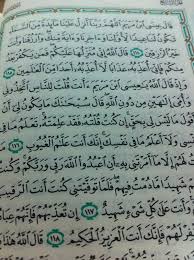 قَالَ عِيسَى ٱبْنُ مَرْيَمَ ٱللَّهُمَّ رَبَّنَآ أَنزِلْ عَلَيْنَا مَآئِدَةً مِّنَ
تَكُونُ لَنَا عِيدًا لِّأَوَّلِنَا وَءَاخِرِنَا وَءَايَةً مِّنكَ وَٱرْزُقْنَا
خَيْرُ ٱلرَّٰزِقِينَ ١١٤ قَالَ ٱللَّهُ إِنِّى مُنَزِّلُهَا عَلَيْكُمْ فَمَن يَكْفُرْ
مِنكُمْ فَإِنِّىٓ أُعَذِّبُهُۥ عَذَابًا لَّآ أُعَذِّبُهُۥٓ أَحَدًا مِّنَ ٱلْعَٰلَمِينَ ١١٥
قَالَ ٱللَّهُ يَٰعِيسَى ٱبْنَ مَرْيَمَ ءَأَنتَ قُلْتَ لِلنَّاسِ
إِلَٰهَيْنِ مِن دُونِ ٱللَّهِ قَالَ سُبْحَٰنَكَ مَا يَكُونُ لِىٓ أَنْ
مَا لَيْسَ لِى بِحَقٍّ إِن كُنتُ قُلْتُهُۥ فَقَدْ عَلِمْتَهُۥ تَعْلَمُ مَا
وَلَآ أَعْلَمُ مَا فِى نَفْسِكَ إِنَّكَ أَنتَ عَلَّٰمُ ٱلْغُيُوبِ ١١٦
إِلَّا مَآ أَمَرْتَنِى بِهِۦٓ أَنِ ٱعْبُدُوا۟ ٱللَّهَ رَبِّى وَرَبَّكُمْ وَكُنتُ
شَهِيدًا مَّا دُمْتُ فِيهِمْ فَلَمَّا تَوَفَّيْتَنِى كُنتَ أَنتَ
وَأَنتَ عَلَىٰ كُلِّ شَىْءٍ شَهِيدٌ ١١٧ إِن تُعَذِّبْهُمْ
تَغْفِرْ لَهُمْ فَإِنَّكَ أَنتَ ٱلْعَزِيزُ ٱلْحَكِيمُ ١١٨ قَالَ ٱللَّهُ هَٰذَا